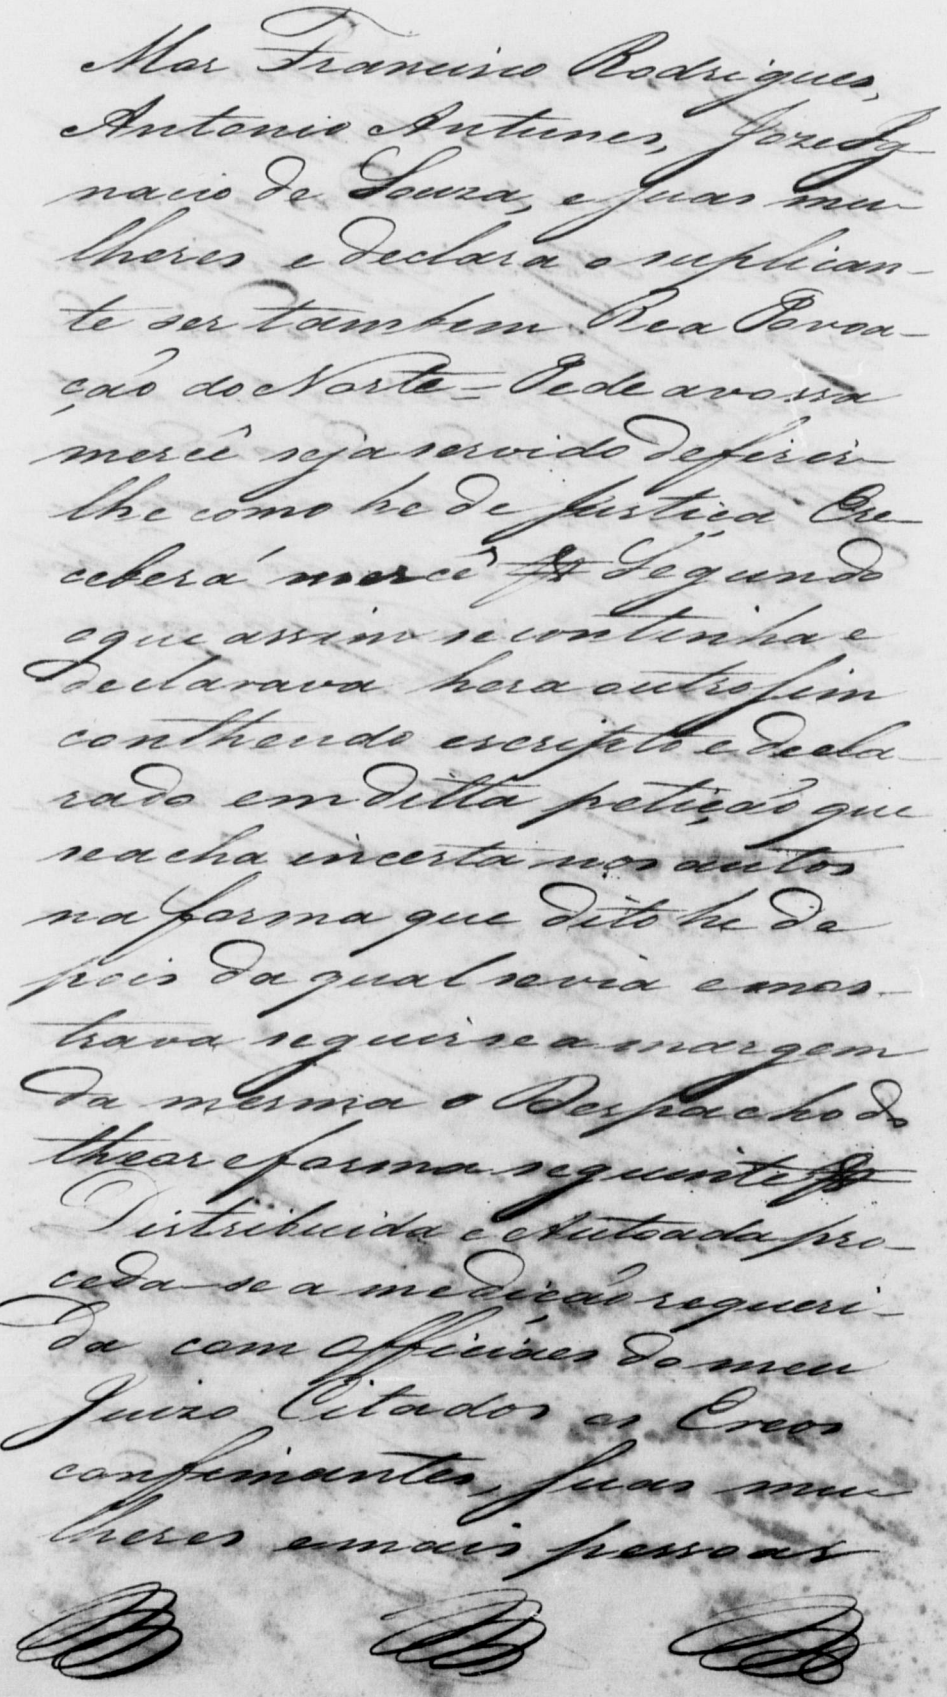 Mor Francisco Rodrigues,
Antonio Antunes, Joze Ig
nacio de Souza, e suas mu
lheres e declara o suplican-
te ser tambem Rea Povoa-
ção do Norte = Pede a vossa
mercê seja servido deferir
lhe como he de justiça Ere
ceberá mercê Segundo
o que assim se continha e
declarava hera outrosim
conthendo escripto e decla-
rado em ditta petição que
se acha incerta nos autos
na forma que dito he de
pois da qual se via e mos-
trava seguirse a margem
da mesma o Despacho do
theor e forma seguinte
Distribuida e Autoada pro-
ceda-se a medição requeri-
da com officiaes do meu
Juizo Citados os Ereos
confinantes, suas mu
lheres e mais pessoas